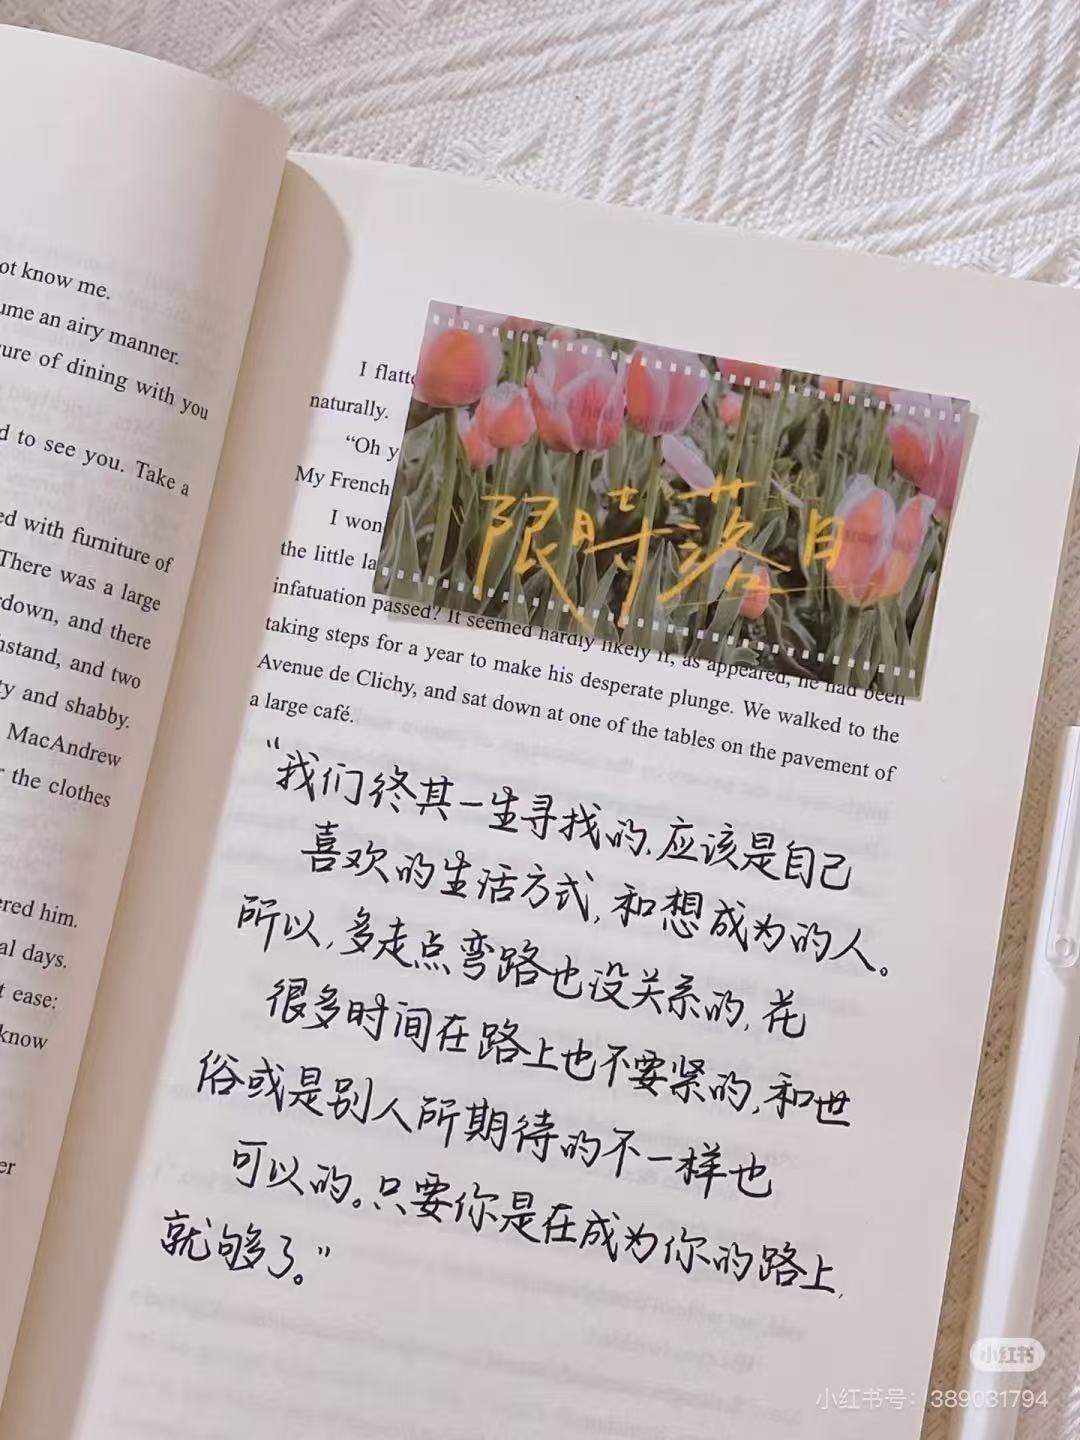 ot know me.
ume an airy manner.
sure of dining with you
d to see you. Take a
ed with furniture of
There was a large
rdown, and there
hstand, and two
ty and shabby.
MacAndrew
r the clothes
ered him.
al days.
t ease:
know
er
I flatte
naturally.
“Oh y
My French
I won
the little la
infatuation passed? It seemed hardly likely if, as appeared, he had been
taking steps for a year to make his desperate plunge. We walked to the
Avenue de Clichy, and sat down at one of the tables on the pavement of
a large café.
限时落日
“我们终其一生寻找的,应该是自己
喜欢的生活方式,和想成为的人。
所以,多走点弯路也没关系的,花
很多时间在路上也不要紧的,和世
俗或是别人所期待的不一样也
可以的。只要你是在成为你的路上,
就够了。”
小红书
小红书号：389031794